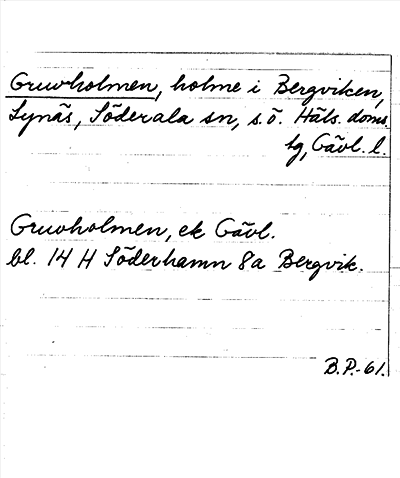 Gruvholmen, holme i Bergviken,
Lynäs, Söderala sn, s. ö. Häls. doms.
tg, Gävl. l.
Gruvholmen, ek Gävl.
bl. 14 H Söderhamn 8a Bergvik.
B.P.-61.